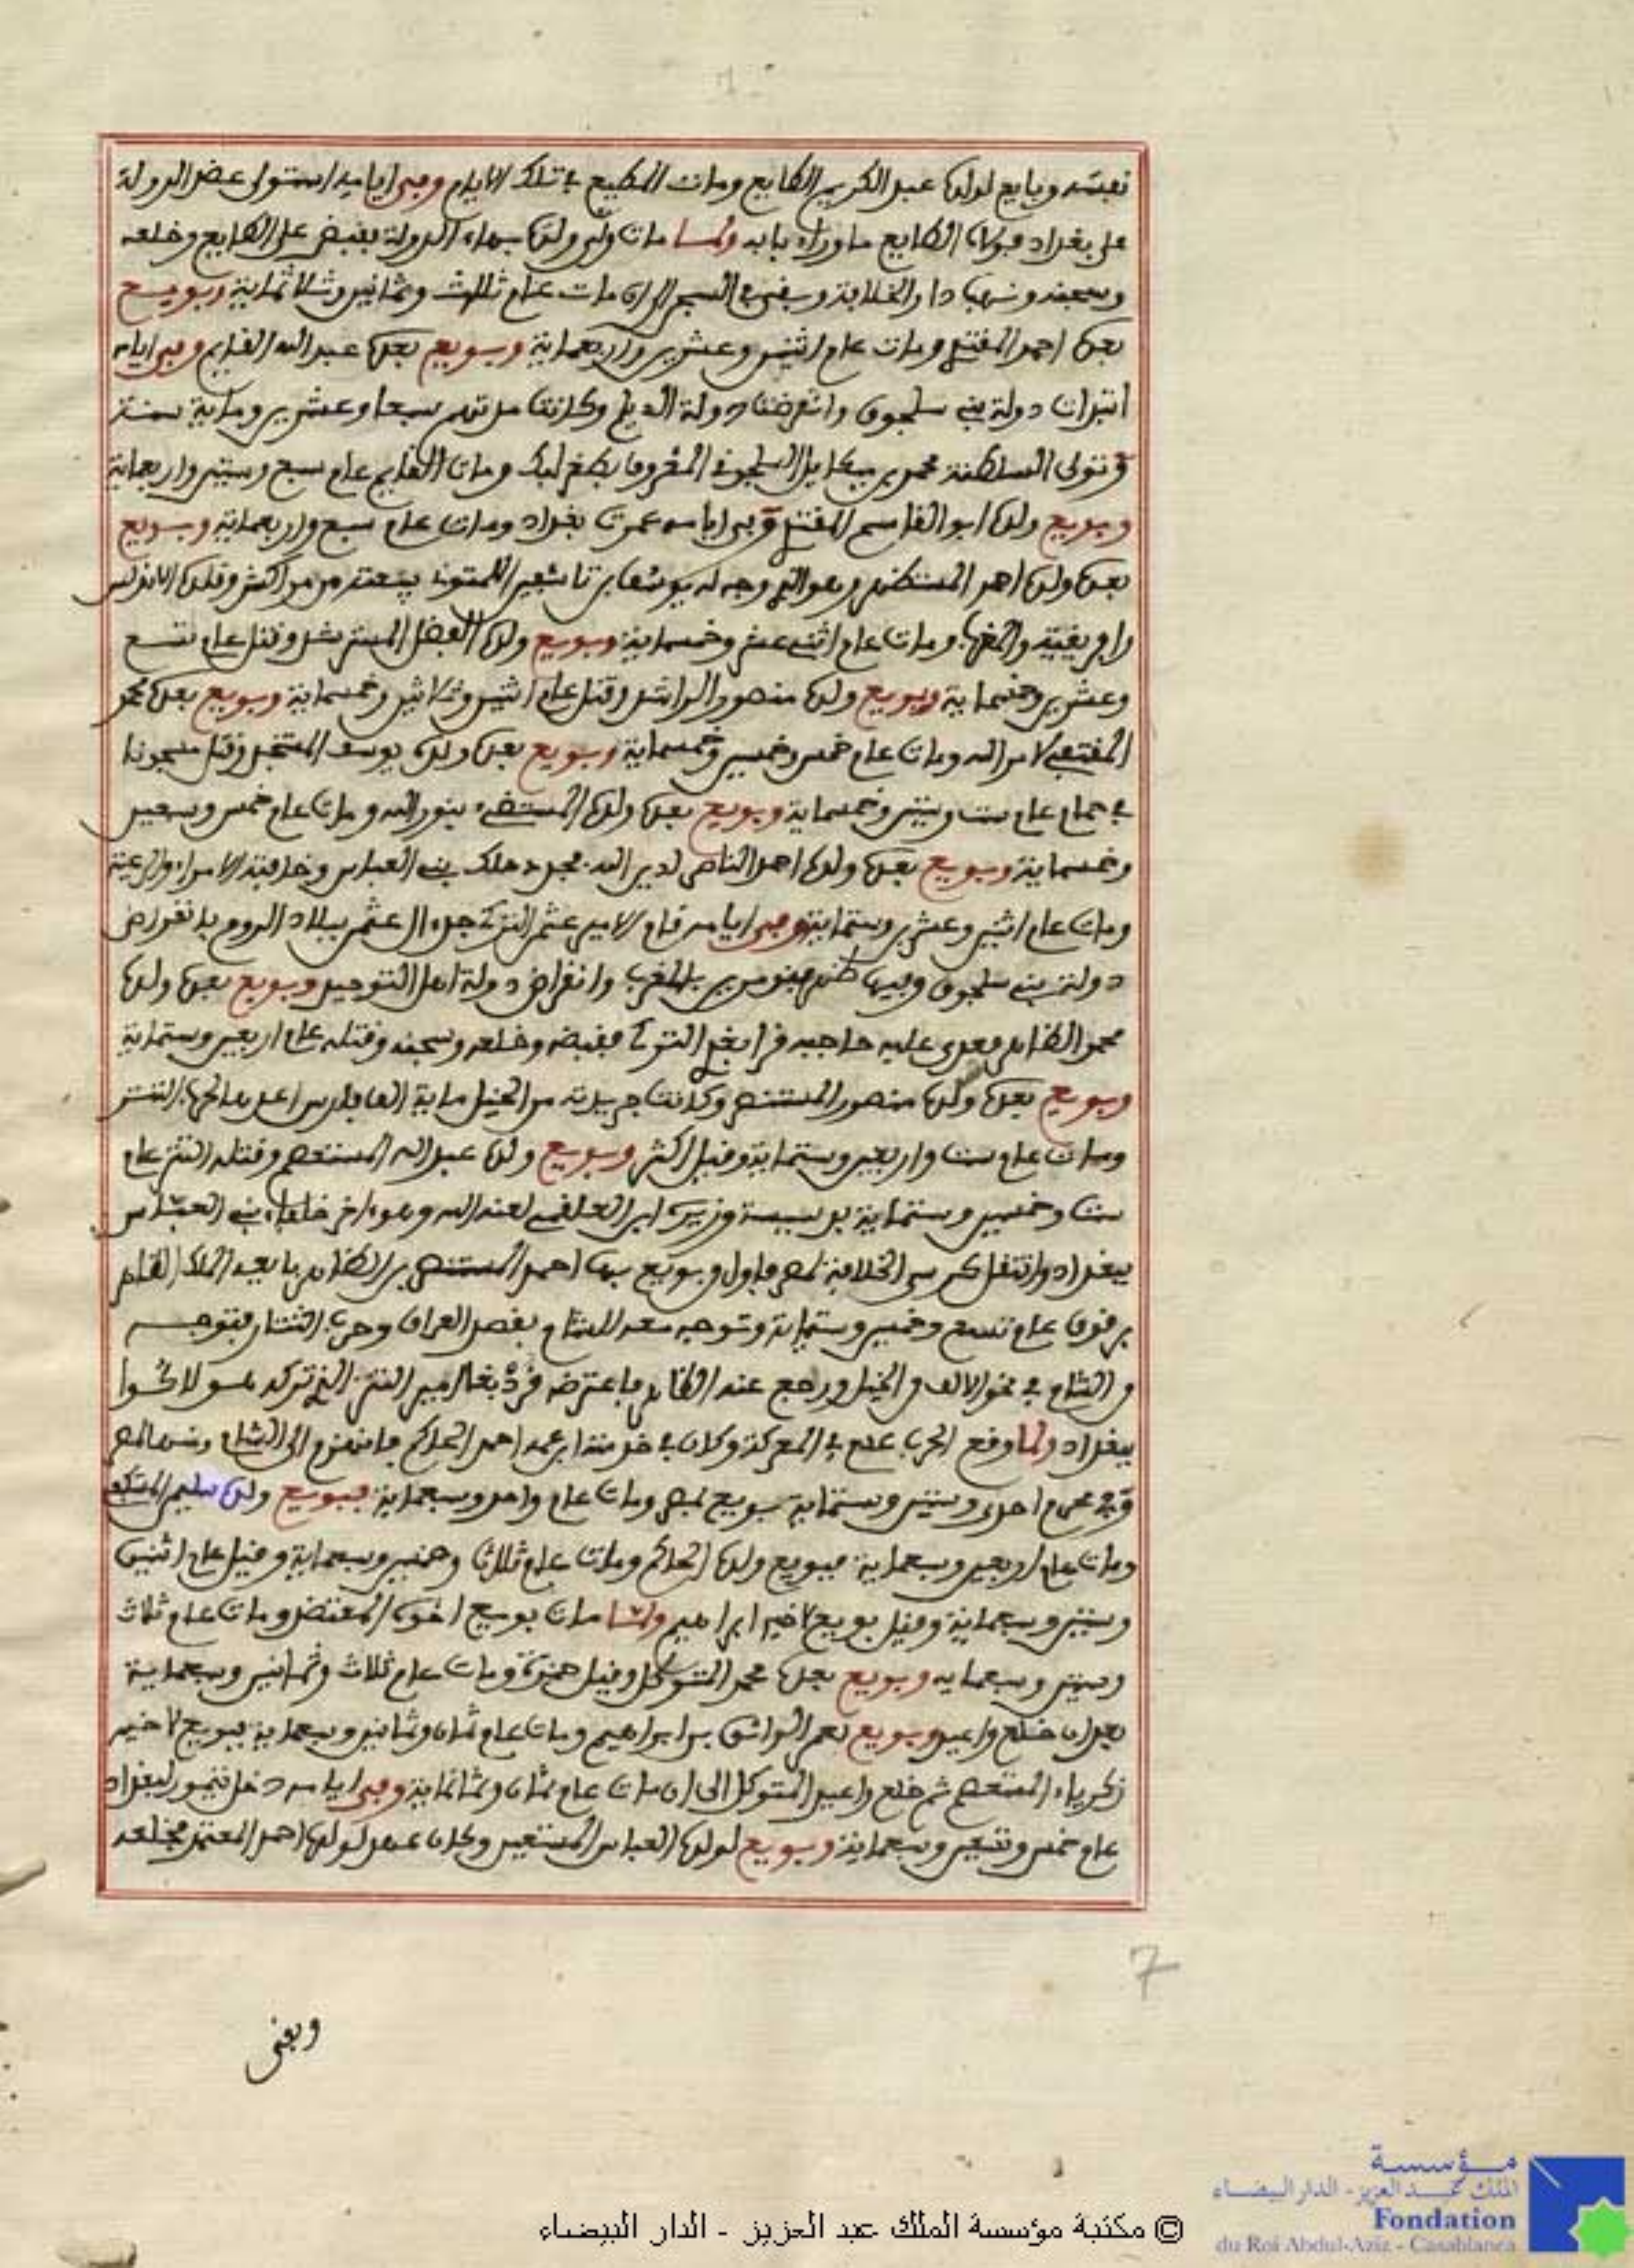 نفسه وبايع لولده عبد الكريم الطايع ومات المطيع في تلك الايام وفي ايامه استولى عضد الدولة
على بغداد فولاه الطايع ما وراء بابه ولما مات ولي ولده بهاء الدولة فقبض على الطايع وخلعه
وسجنه ونهب دار الخلافة وبقي في السجن الى ان مات عام ثلاث وثمانين وثلاثماية وبويع
بعده احمد المقتدر ومات عام اثنين وعشرين واربعماية وبويع بعده عبد الله القايم وفي ايامه
ابتدات دولة بني سلجوق وانقرضت دولة الديلم وكانت مدتهم سبعا وعشرين وماية سنة
وتولى السلطنة محمد بن ميكايل السلجوقي المعروف بطغرلبك ومات القايم عام سبع وستين واربعماية
وبويع ولده ابو القاسم المقتدي وفي ايامه عمرت بغداد ومات عام سبع واربعماية وبويع
بعده ولده احمد المستظهر وهو الذي وجه له يوسف بن تاشفين اللمتوني ببيعته من مراكش وقلده الاندلس
وافريقية والمغرب ومات عام اثني عشر وخمسماية وبويع ولده الفضل المسترشد وقتل عام تسع
وعشرين وخمسماية وبويع ولده منصور الراشد وقتل عام اثنين وثلاثين وخمسماية وبويع بعده محمد
المقتفي لامر الله ومات عام خمس وخمسين وخمسماية وبويع بعده ولده يوسف المستنجد وقتل مسجونا
في حمام عام ست وستين وخمسماية وبويع بعده ولده المستضيء بنور الله ومات عام خمس وسبعين
وخمسماية وبويع بعده ولده احمد الناصر لدين الله مجدد ملك بني العباس وخافته الامراء والرعية
ومات عام اثنين وعشرين وستماية وفي ايامه قام الامير عثمن التركي جد ال عثمن ببلاد الروم بانقراض
دولة بني سلجوق وفيها ظهر بنو مرين بالمغرب وانقراض دولة اهل التوحيد وبويع بعده ولده
محمد الظاهر فعدى عليه حاجبه قرابغدي التركي فقبضه وخلعه وسجنه وقتله عام اربعين وستماية
وبويع بعده ولده منصور المستنصر وكانت جريدته من الخيل ماية الف فارس اعدها لحرب التتر
ومات عام ست واربعين وستماية وقيل اكثر وبويع ولده عبد الله المستعصم وقتله التتر عام
ست وخمسين وستماية بدسيسة وزيره ابن العلقمي لعنه الله وهو اخر خلفاء بني العباس
ببغداد وانتقل كرسي الخلافة لمصر فاول من بويع بها احمد المستنصر بن الظاهر بايعه الملك الظاهر
برقوق عام تسع وخمسين وستماية وتوجه معه للشام بقصد العراق وحرب التتار فتوجه
من الشام في نحو الالف من الخيل ورجع عنه الظاهر فاعترضه قرابغا امير التتر الذي تركه هولاكو
ببغداد ولما وقع الحرب عدم في المعركة وكان في خدمته ابن عمه احمد الحاكم فانهزم الى الشام ومنها لمصر
وفي محرم احدى وستين وستماية بويع بمصر ومات عام واحد وسبعماية فبويع ولده سليمن المستكفي
ومات عام اربعين وسبعماية فبويع ولده الحاكم ومات عام ثلاث وخمسين وسبعماية وقيل عام اثنين
وستين وسبعماية وقيل بويع لاخيه ابراهيم ولما مات بويع اخوه المعتضد ومات عام ثلاث
وستين وسبعمايه وبويع بعده محمد المتوكل وقيل حمزة ومات عام ثلاث وثمانين وسبعماية
بعد ان خلع واعيد وبويع لعمر الواثق بن ابراهيم ومات عام ثمان وثمانين وسبعماية فبويع لاخيه
زكرياء المستعصم ثم خلع واعيد المتوكل الى ان مات عام ثمان وثمانماية وفي ايامه دخل تيمور لبغداد
عام خمس وتسعين وسبعماية وبويع لولده العباس المستعين وكان عهد لولده احمد المعتمد فخلعه
7
وبقي
© مكتبة مؤسسة الملك عبد العزيز - الدار البيضاء
مؤسسة
الملك عبد العزيز - الدار البيضاء
Fondation
du Roi Abdul-Aziz - Casablanca